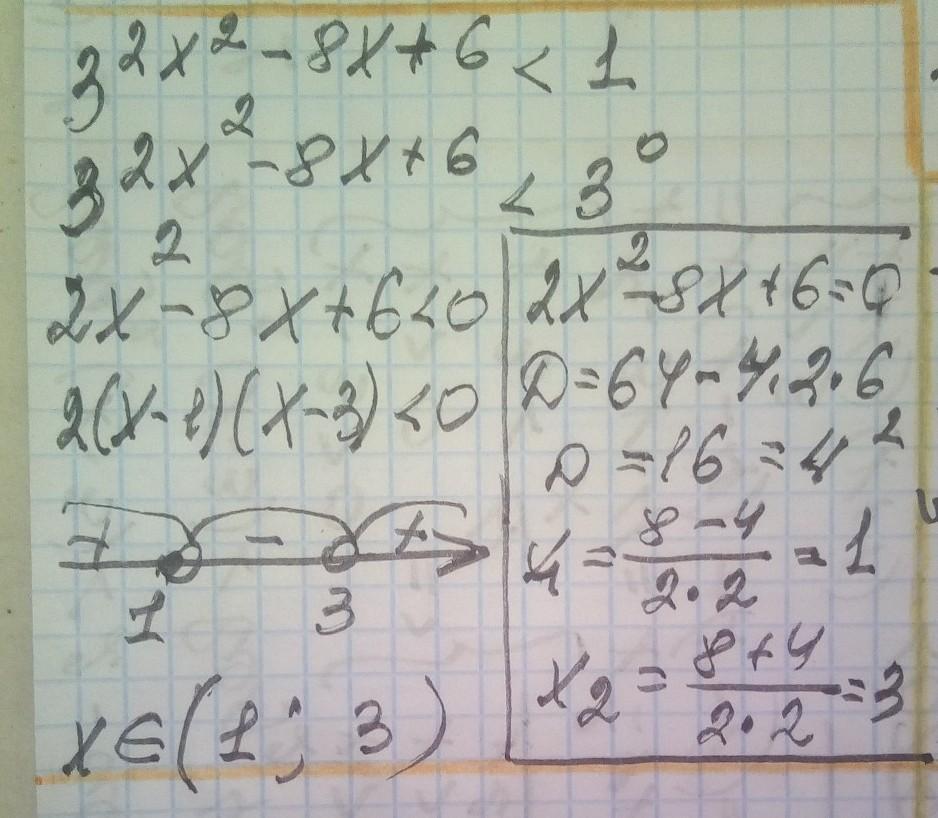 3^(2x² - 8x + 6) < 1
3^(2x² - 8x + 6) < 3⁰
2x² - 8x + 6 < 0
2(x-1)(x-3) < 0
+ - +
1 3
x ∈ (1; 3)
2x² - 8x + 6 = 0
D = 64 - 4·2·6
D = 16 = 4²
x₁ = (8 - 4)/(2·2) = 1
x₂ = (8 + 4)/(2·2) = 3